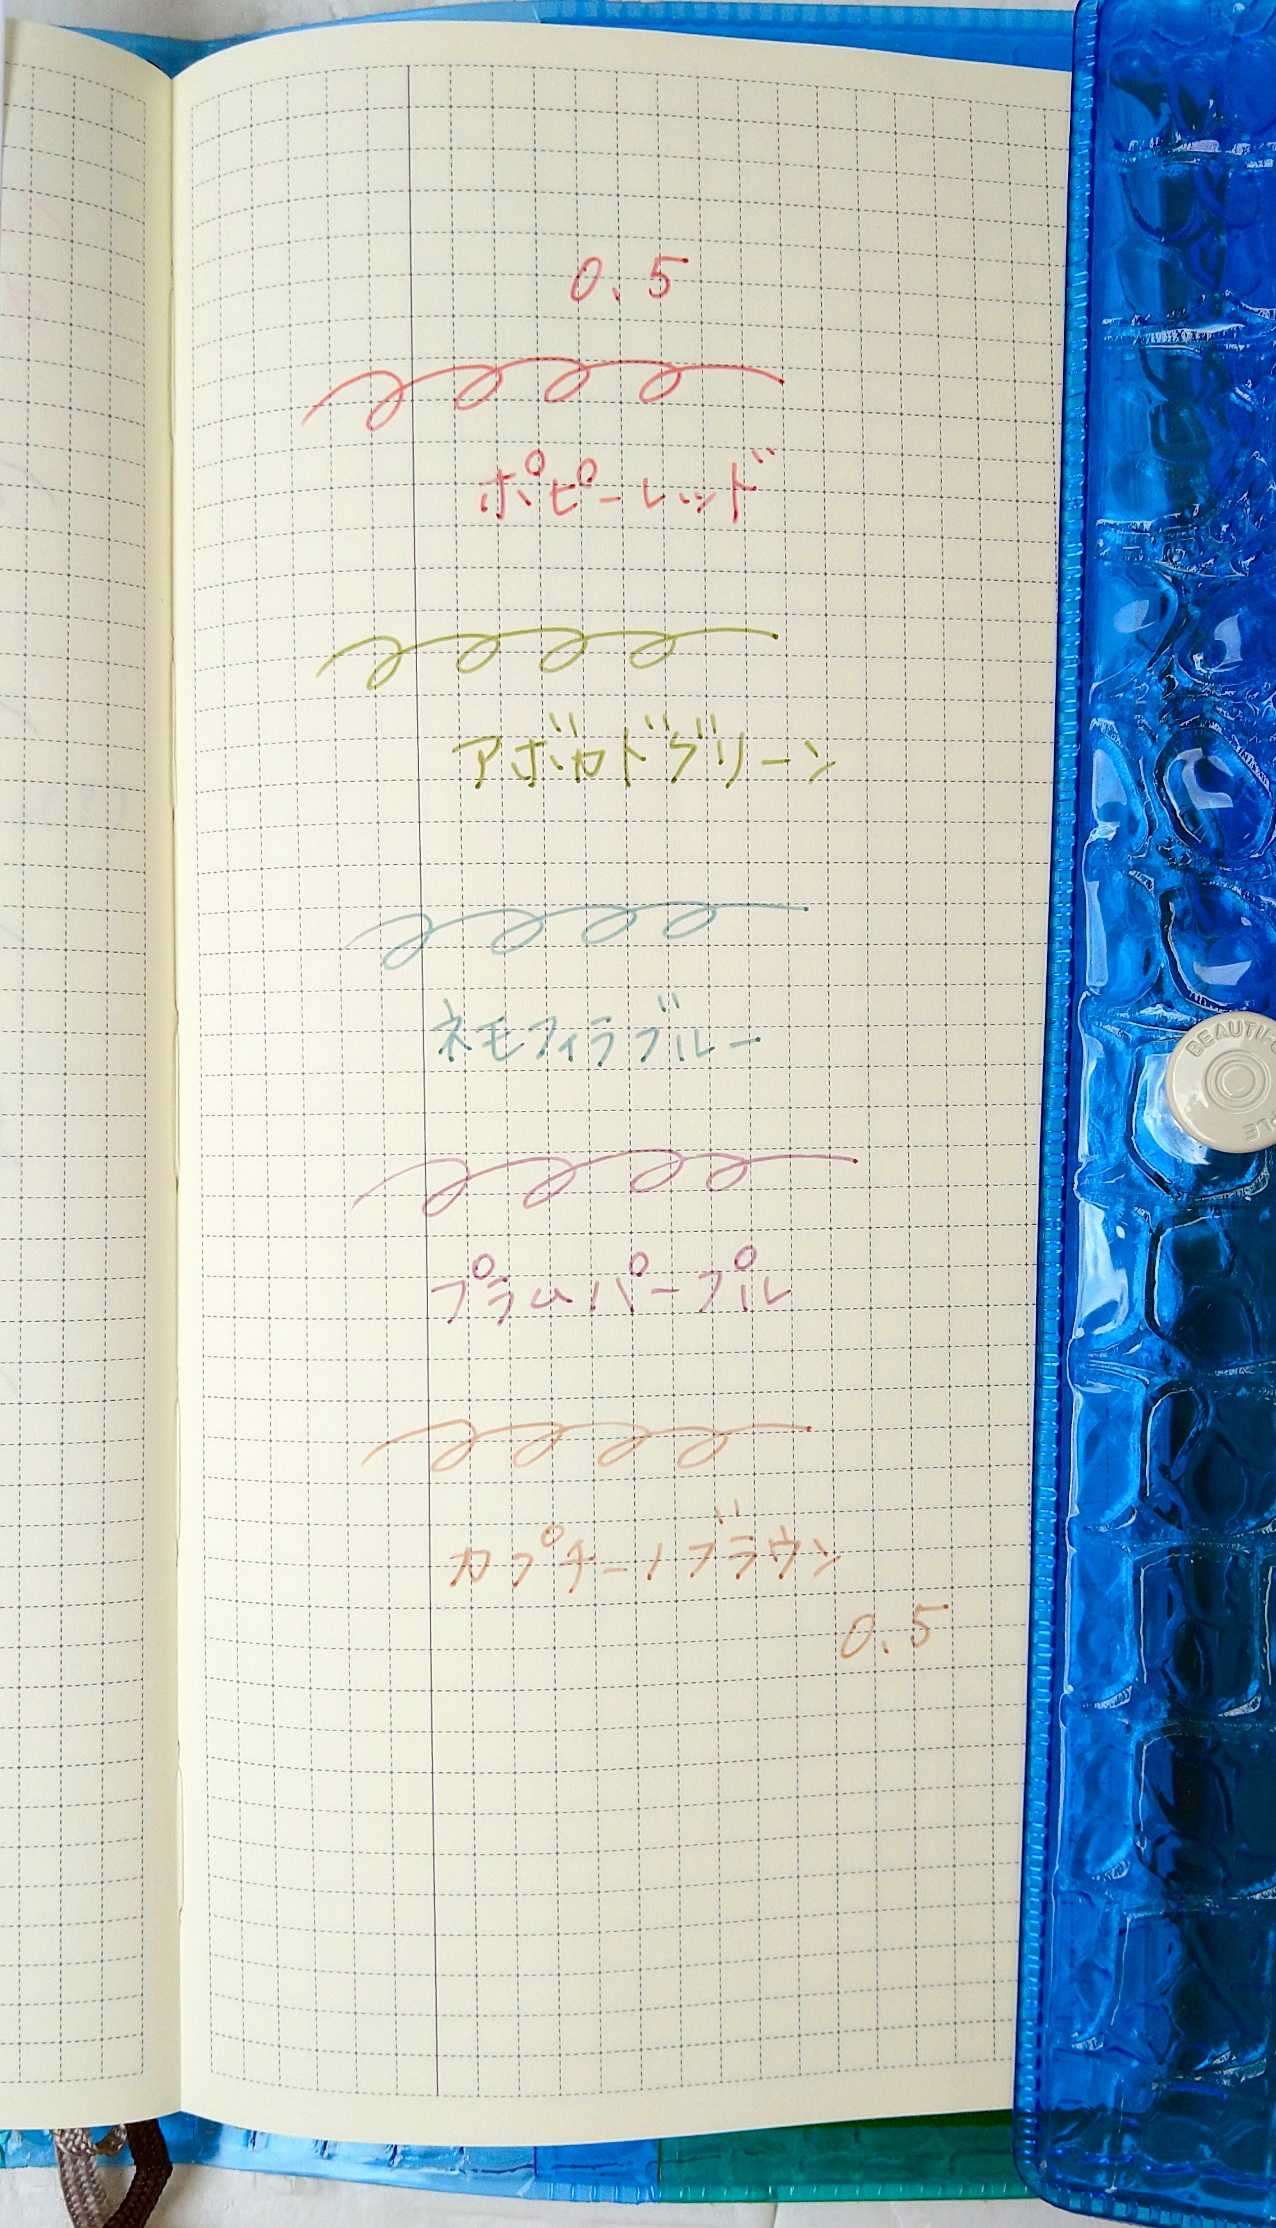 0.5
ポピーレッド
アボカドグリーン
ネモフィラブルー
プラムパープル
カプチーノブラウン
0.5